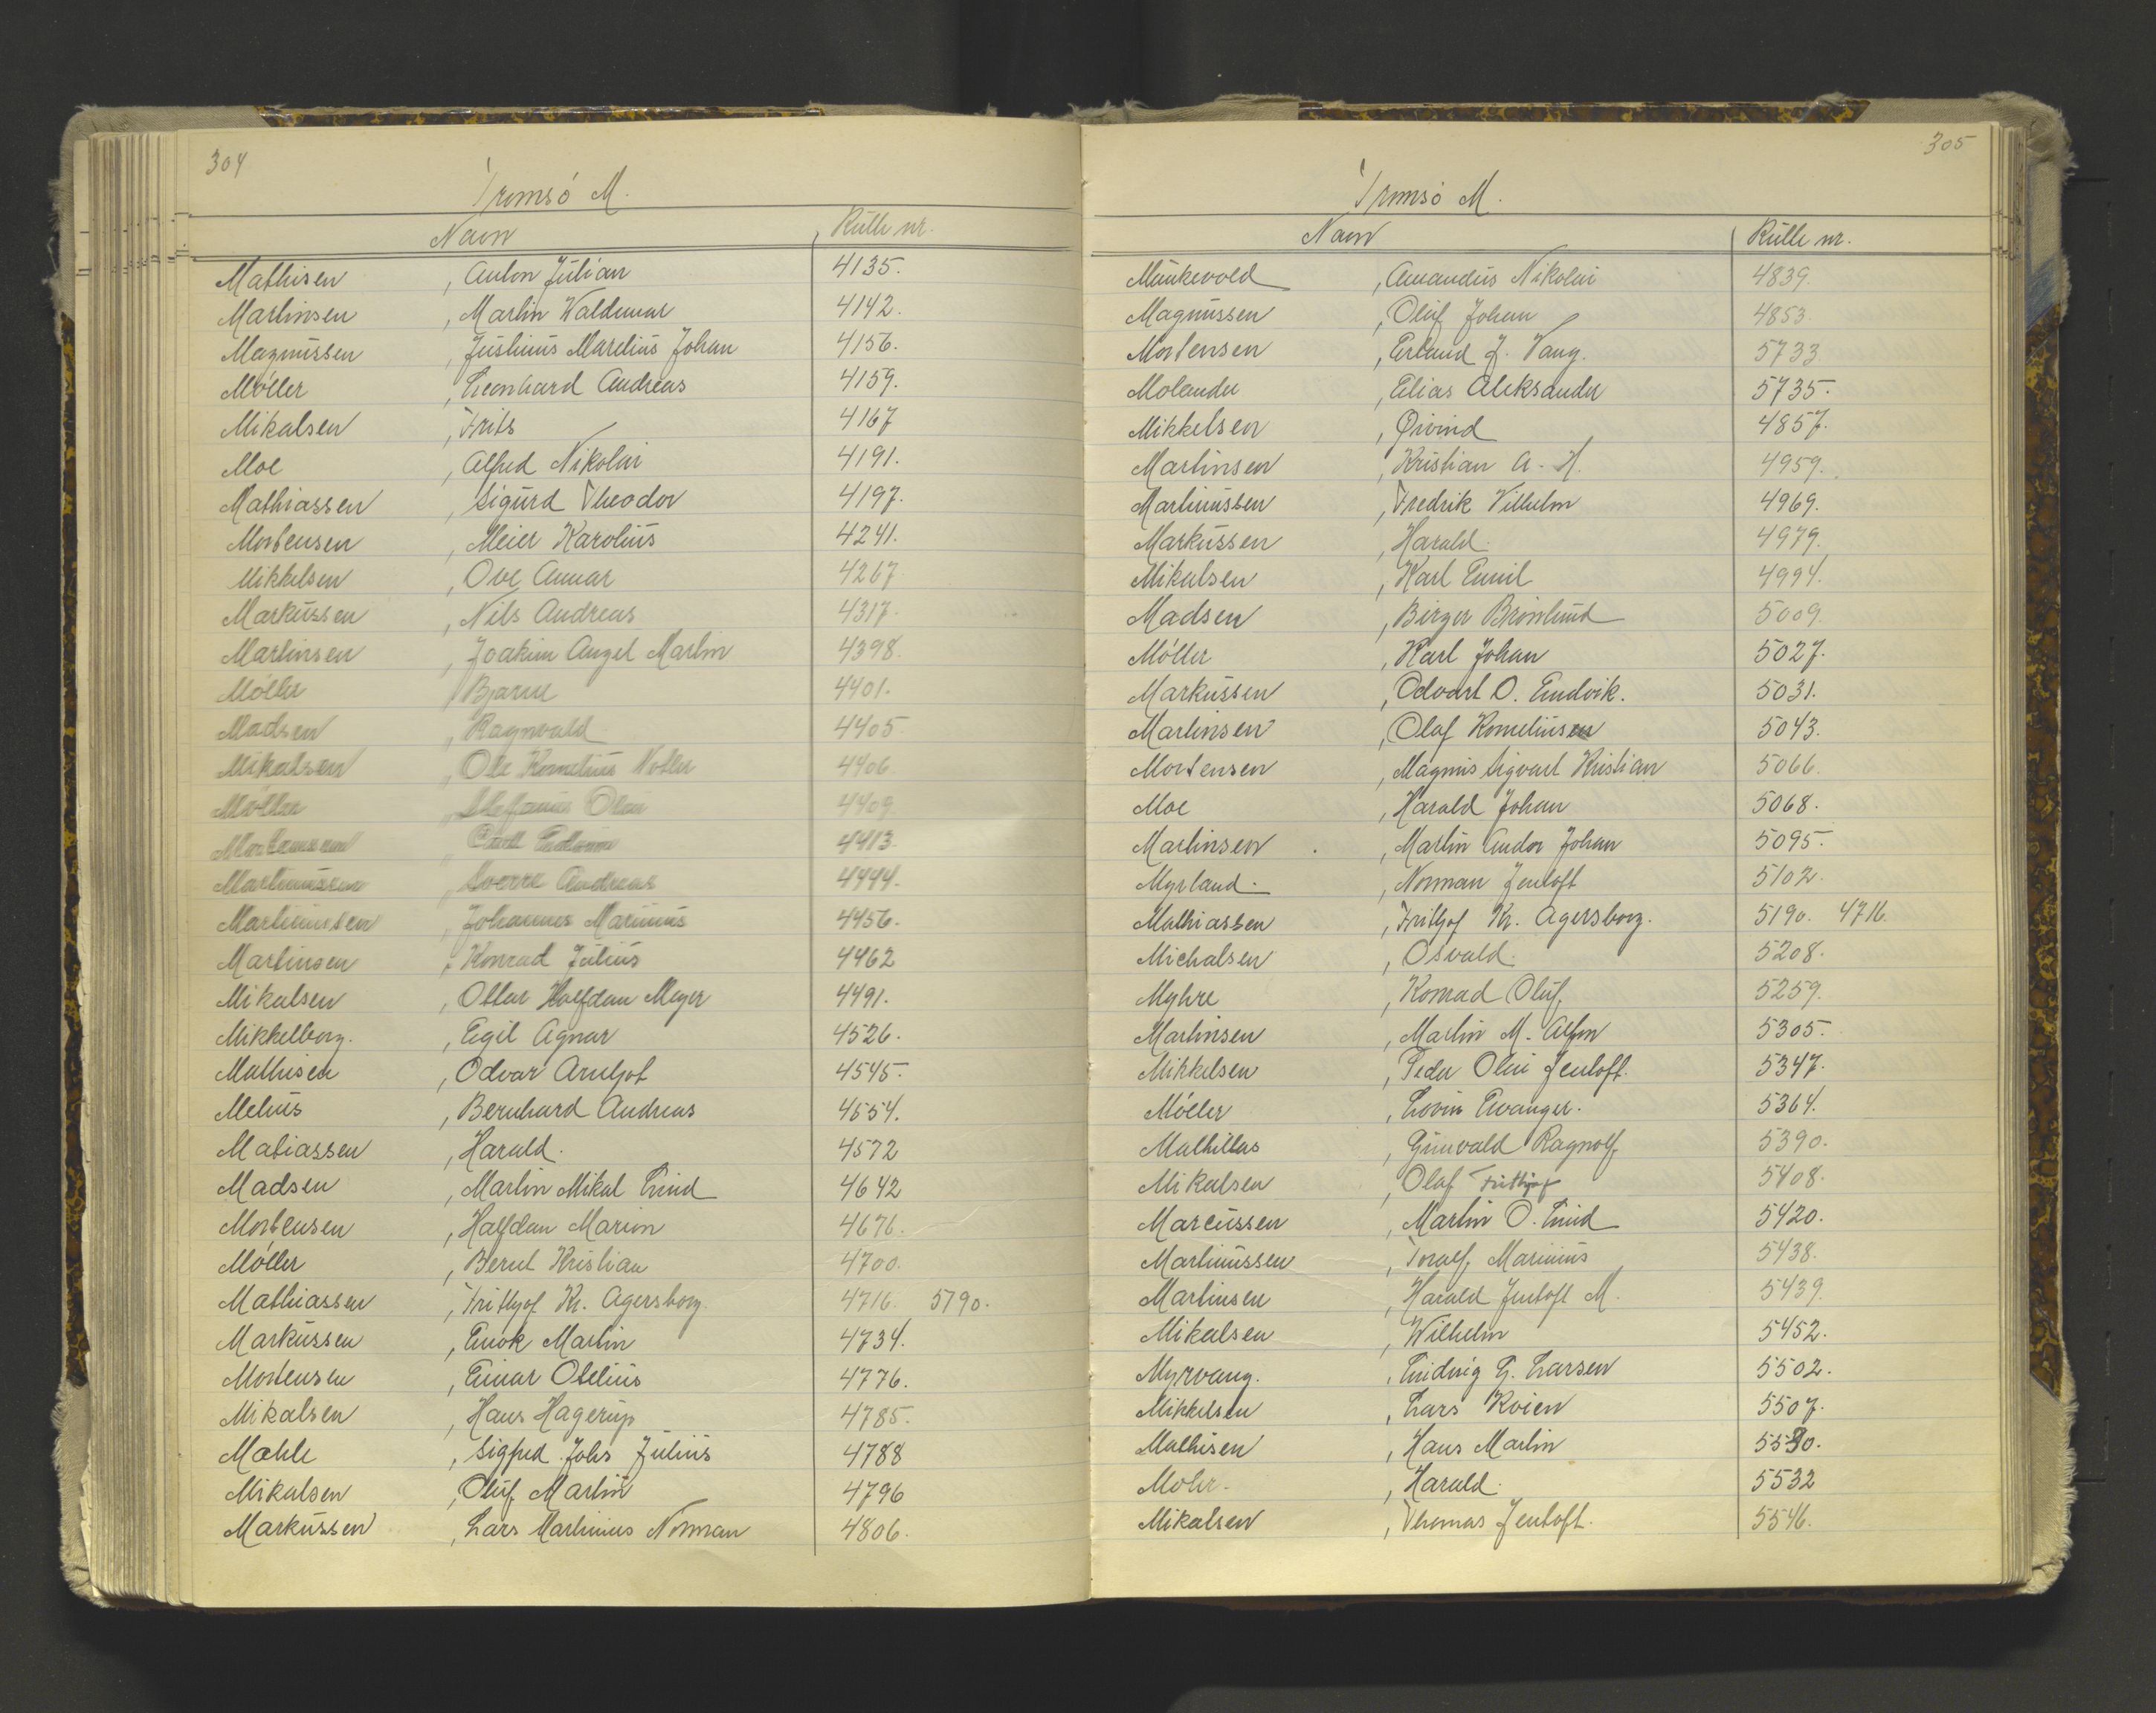 304
Tromsö M.
Navn Rulle nr.
Mathisen , Anton Julian 4135.
Martinsen , Martin Waldemar 4142.
Magnussen , Justinus Marelius Johan 4156.
Möller , Leonhard Andreas 4159.
Mikalsen , Frits 4167
Moe , Alfred Nikolai 4191.
Mathiassen , Sigurd Theodor 4197.
Mortensen , Meier Karolius 4241.
Mikkelsen , Ove Annar 4267
Markussen , Nils Andreas 4317.
Martinsen , Joakim Angel Martin 4398.
Möller , Bjarne 4401.
Madsen , Ragnvald 4405
Mikalsen , Ole Kornelius 4406
Möller 4409
Mortensen 4413.
Sverre Andreas 4444.
Martinussen , Johannes Marinius 4456.
Martinsen , Konrad Julius 4462
Mikalsen , Ottar Halfdan Meyer 4491.
Mikkelborg. , Egil Agnar 4526.
Mathisen , Odvar Arnljot 4545.
Melius , Bernhard Andreas 4554.
Matiassen , Harald. 4572
Madsen , Martin Mikal Lind 4642
Mortensen , Halfdan Marion 4676.
Möller , Bernt Kristian 4700.
Mathiassen , Frithjof Kr. Agersborg. 4716. 5190.
Markussen , Enok Martin 4734.
Mortensen , Einar Otelius 4776.
Mikalsen , Hans Hagerup 4785.
Mæhle , Sigfred Johs Julius 4788
Mikalsen , Oluf Martin 4796
Markussen , Lars Martinius Norman 4806.
305
Tromsö M.
Navn Rulle nr.
Munkevold , Amandus Nikolai 4839.
Magnussen , Oluf Johan 4853.
Mortensen , Erland J. Vang. 5733
Molander , Elias Aleksander 5735.
Mikkelsen , Øivind 4857.
Martinsen , Kristian A. H. 4959.
Martinussen , Fredrik Vilhelm 4969.
Markussen , Harald. 4979.
Mikalsen , Karl Emil 4994.
Madsen , Birger Brönlund 5009.
Möller , Karl Johan 5027.
Markussen , Odvart O. Endvik. 5031.
Martinsen , Olaf Korneliusen 5043.
Mortensen , Magnus Sigvart Kristian 5066.
Moe , Harald Johan 5068.
Martinsen , Martin Andor Johan 5095.
Myrland. , Norman Jentoft 5102.
Mathiassen , Frithjof Kr. Agersborg. 5190. 4716.
Michalsen , Osvald. 5208.
Myhre , Konrad Oluf 5259.
Martinsen , Martin M. Alfon 5305.
Mikkelsen , Peder Olai Jentoft. 5347.
Möller , Lovin Evanger. 5364.
Mathillas , Grunvald Ragnolf 5390.
Mikalsen , Olaf Frithjof 5408.
Marcussen , Martin O. Lund 5420.
Martinussen , Toralf Marinius 5438.
Martinsen , Harald Jentoft M. 5439.
Mikalsen , Wilhelm 5452.
Myrvang. , Ludvig G. Larsen 5502.
Mikkelsen , Lars Kvien 5507.
Mathisen , Hans Martin 5530.
Mohr. , Harald. 5532
Mikalsen , Thomas Jentoft. 5546.